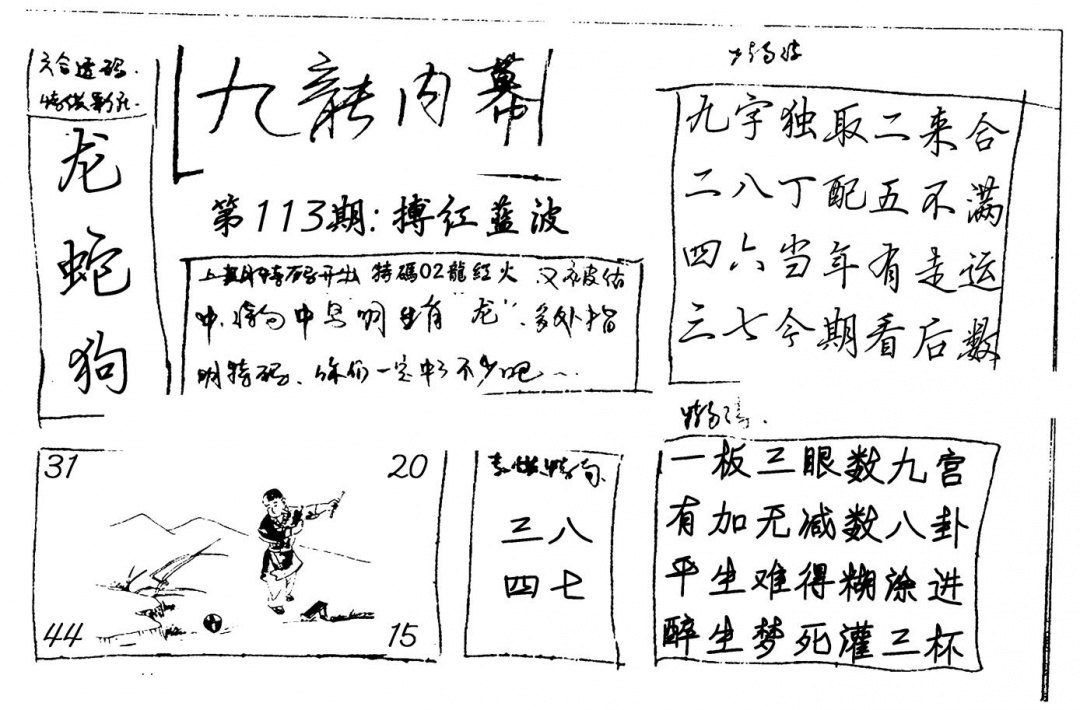 六合透码
龙
蛇
狗
九龍内幕
第113期:搏红蓝波
上期特码开出 特碼02龍红火 又被估
中,中 "龙",多处指
明特码,你们一定中了不少吧
九字独取二来合
二八丁配五不满
四六当年有走运
三七今期看后数
一板三眼数九宫
有加无减数八卦
平生难得糊涂进
醉生梦死灌三杯
31
20
44
15
三八
四七